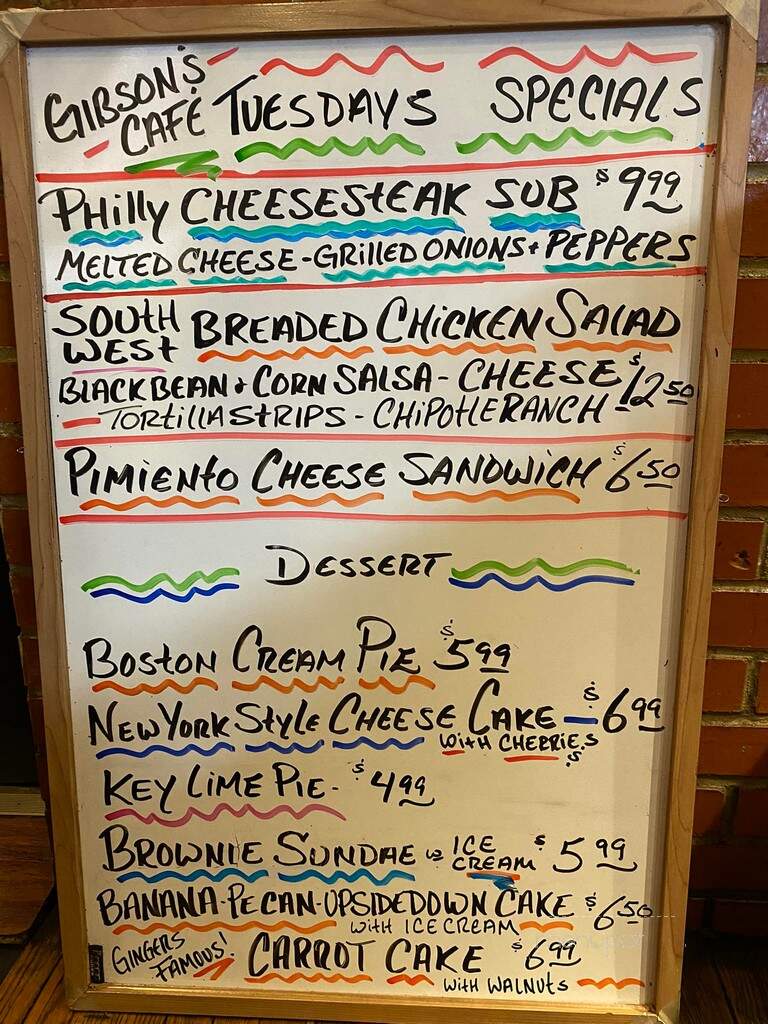 GIBSON'S CAFÉ TUESDAYS SPECIALS
PHILLY CHEESESTEAK SUB $9.99
MELTED CHEESE - GRILLED ONIONS + PEPPERS
SOUTH WEST BREADED CHICKEN SALAD
BLACK BEAN + CORN SALSA - CHEESE $12.50
TORTILLA STRIPS - CHIPOTLE RANCH
PIMIENTO CHEESE SANDWICH $6.50
DESSERT
BOSTON CREAM PIE $5.99
NEW YORK STYLE CHEESE CAKE - $6.99
WITH CHERRIES
KEY LIME PIE - $4.99
BROWNIE SUNDAE w ICE CREAM $5.99
BANANA-PECAN-UPSIDEDOWN CAKE $6.50
WITH ICE CREAM
GINGERS FAMOUS! CARROT CAKE $6.99
WITH WALNUTS